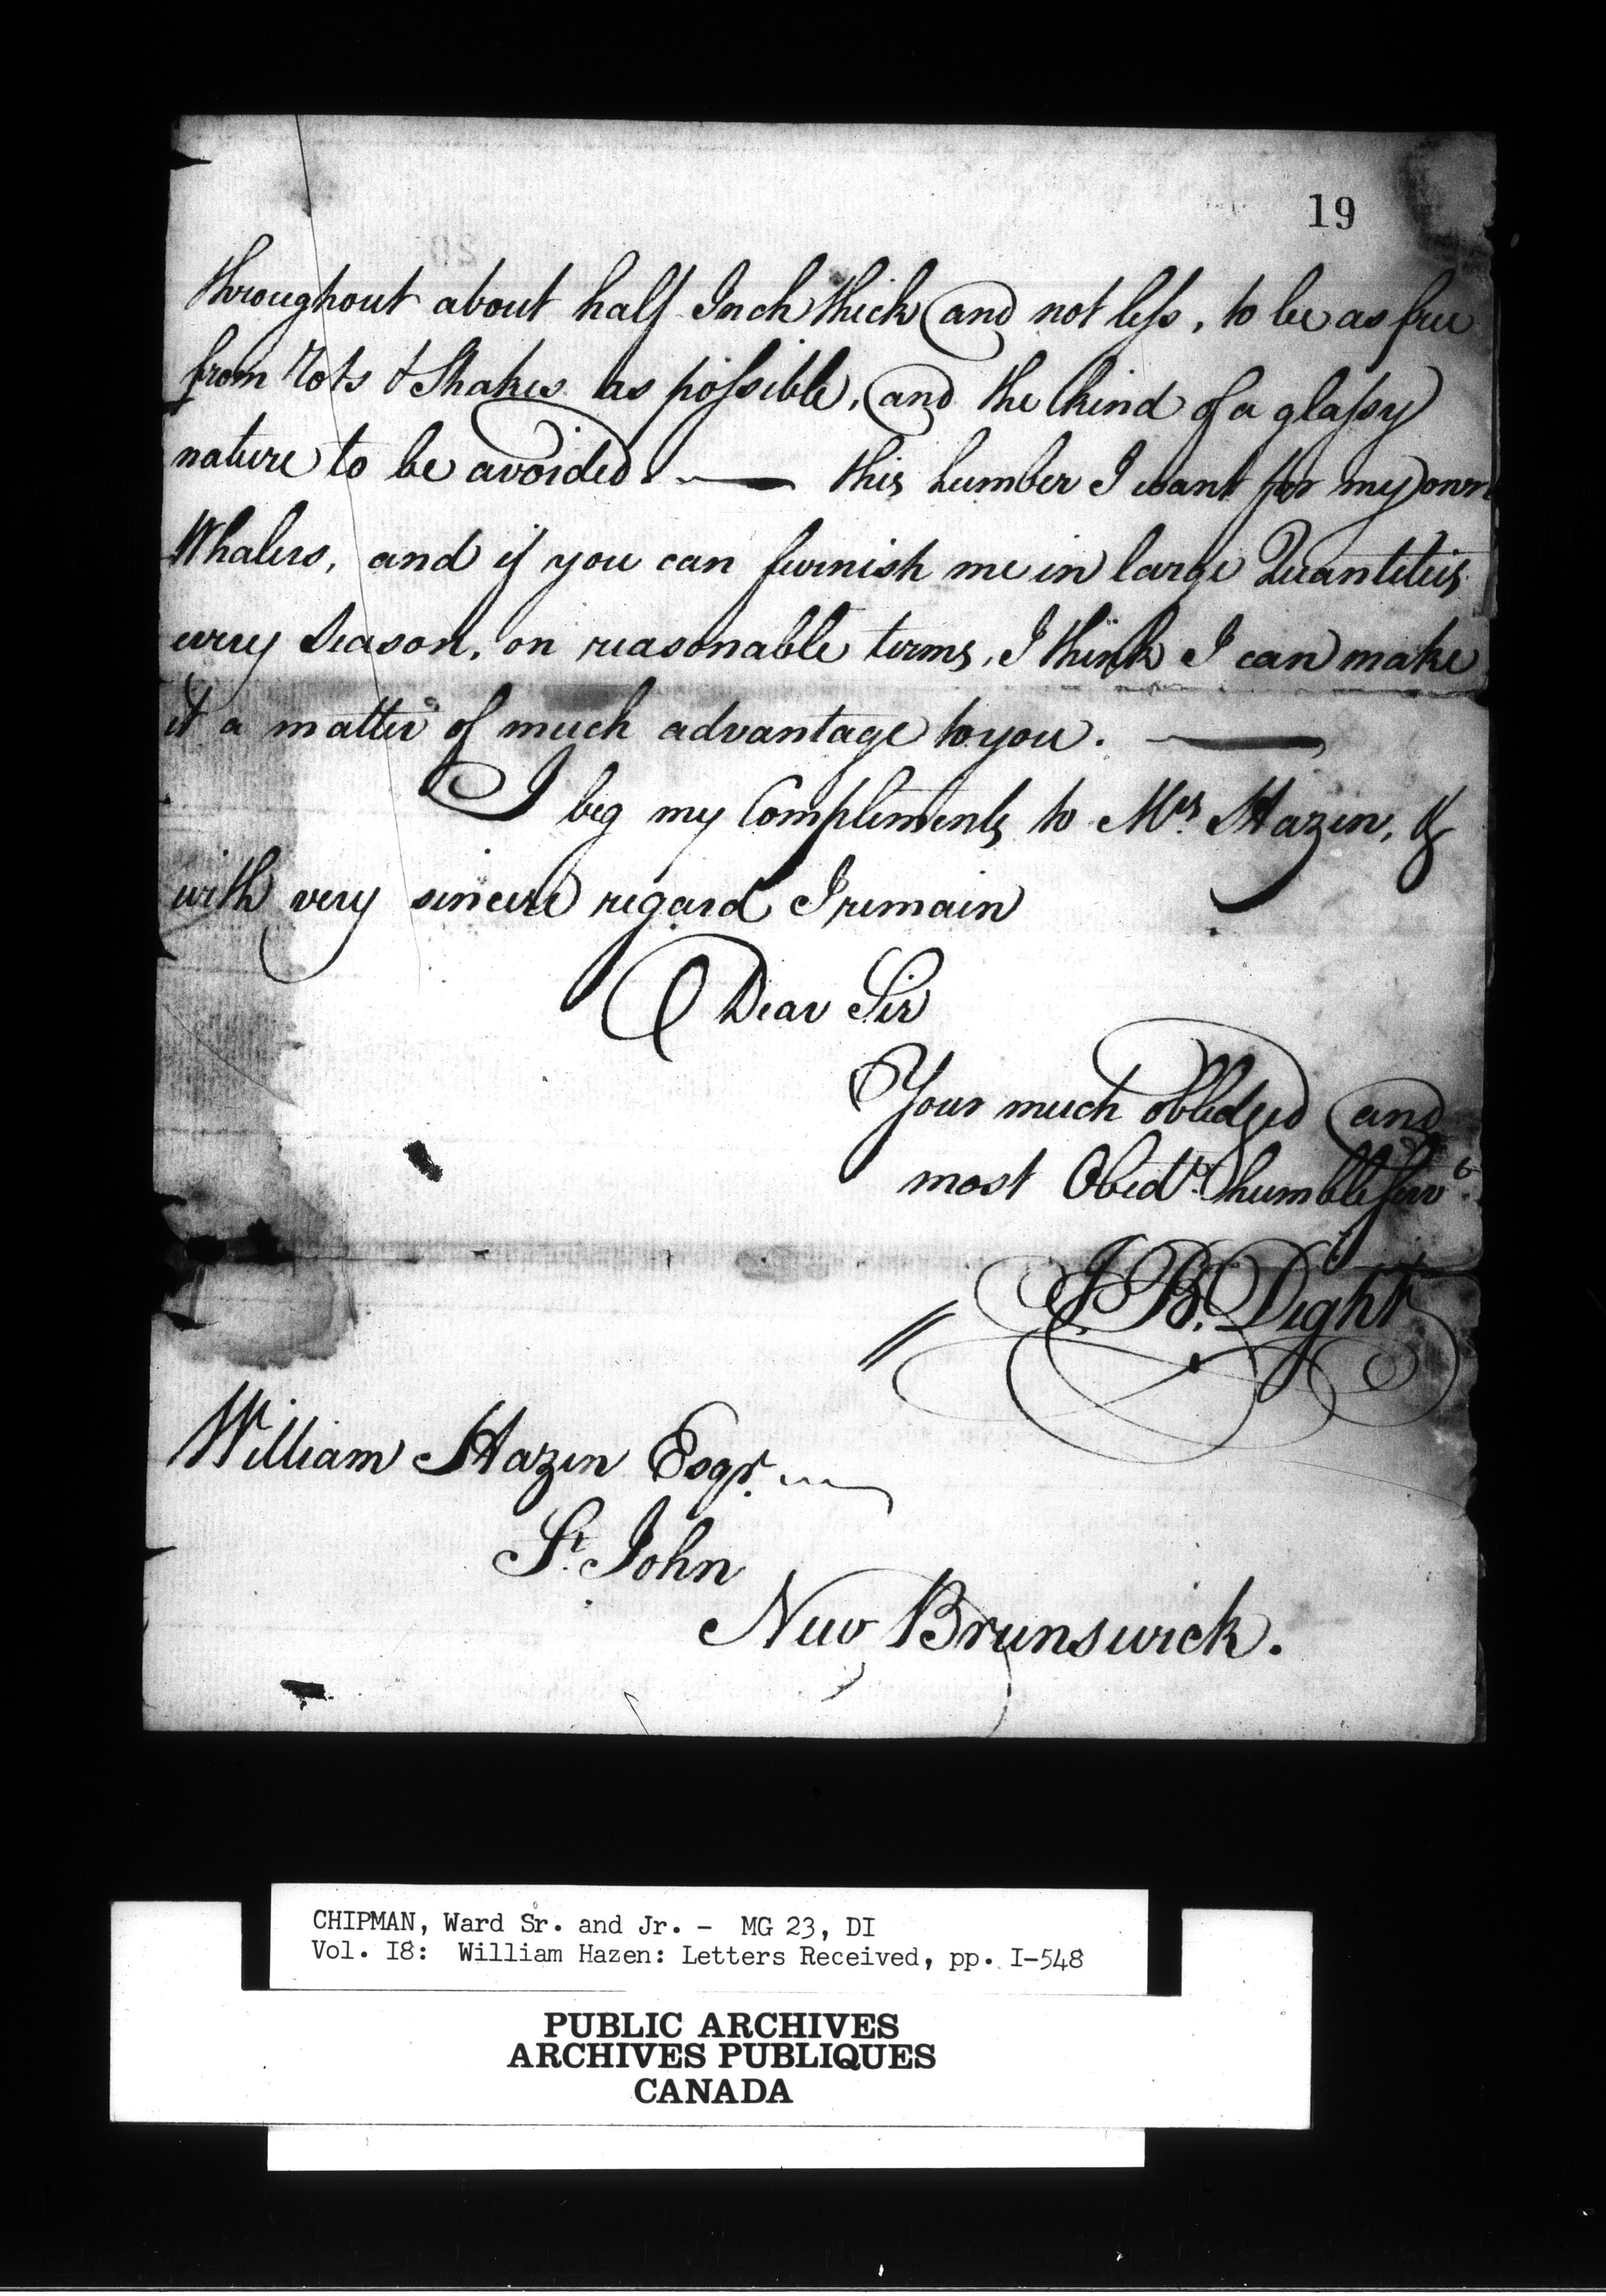 19
throughout about half Inch thick and not less, to be as free
from Rots & Shakes as possible, and the kind of a glassy
nature to be avoided. — this Lumber I want for my own
Whalers, and if you can furnish me in large Quantities
every Season, on reasonable terms, I think I can make
it a matter of much advantage to you. —
I beg my Compliments to Mrs. Hazen, &
with very sincere regard I remain
Dear Sir
Your much obliedged and
most Obedt. humble Servt.
J. B. Dight
William Hazen Esqr.
St. John
New Brunswick.
CHIPMAN, Ward Sr. and Jr. - MG 23, DI
Vol. I8: William Hazen: Letters Received, pp. I-548
PUBLIC ARCHIVES
ARCHIVES PUBLIQUES
CANADA